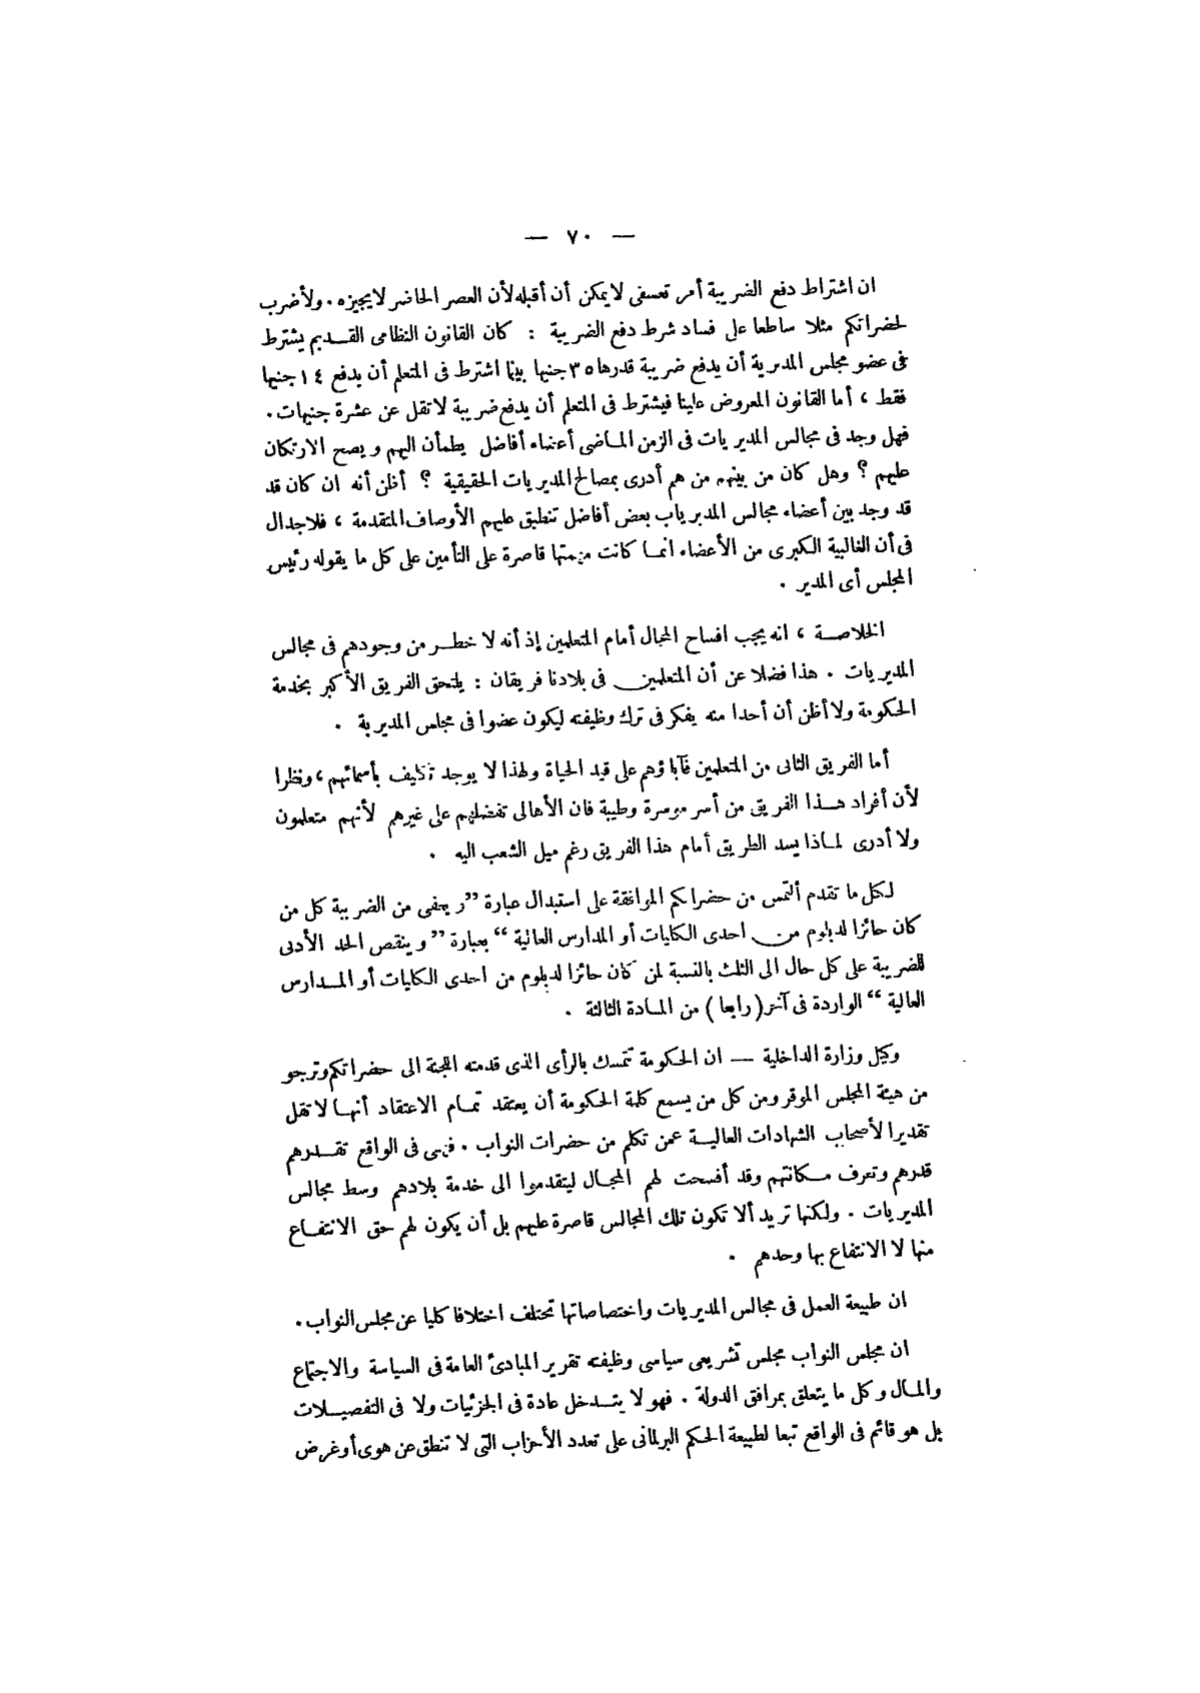 — ٧٠ —
ان اشتراط دفع الضريبة أمر تعسفى لا يمكن أن أقبله لأن العصر الحاضر لا يجيزه . ولأضرب
لحضراتكم مثلا ساطعا على فساد شرط دفع الضريبة : كان القانون النظامى القديم يشترط
فى عضو مجلس المديرية أن يدفع ضريبة قدرها ٣٥ جنيها بينما اشترط فى المتعلم أن يدفع ١٤ جنيها
فقط ، أما القانون المعروض علينا فيشترط فى المتعلم أن يدفع ضريبة لا تقل عن عشرة جنيهات .
فهل وجد فى مجالس المديريات فى الزمن الماضى أعضاء أفاضل يطمأن اليهم ويصح الارتكان
عليهم ؟ وهل كان من بينهم من هم أدرى بمصالح المديريات الحقيقية ؟ أظن أنه ان كان قد
قد وجد بين أعضاء مجالس المديريات بعض أفاضل تنطبق عليهم الأوصاف المتقدمة ، فلا جدال
فى أن الغالبية الكبرى من الأعضاء انما كانت مهمتها قاصرة على التأمين على كل ما يقوله رئيس
المجلس أى المدير .
الخلاصة ، انه يجب افساح المجال أمام المتعلمين إذ أنه لا خطر من وجودهم فى مجالس
المديريات . هذا فضلا عن أن المتعلمين فى بلادنا فريقان : يلتحق الفريق الأكبر بخدمة
الحكومة ولا أظن أن أحدا منه يفكر فى ترك وظيفته ليكون عضوا فى مجلس المديرية .
أما الفريق الثانى من المتعلمين فآباؤهم على قيد الحياة ولهذا لا يوجد تكليف بأسمائهم ، ونظرا
لأن أفراد هذا الفريق من أسر موسرة وطيبة فان الأهالى تفضلهم على غيرهم لأنهم متعلمون
ولا أدرى لماذا يسد الطريق أمام هذا الفريق رغم ميل الشعب اليه .
لكل ما تقدم ألتمس من حضراتكم الموافقة على استبدال عبارة ”ويعفى من الضريبة كل من
كان حائزا لدبلوم من احدى الكليات أو المدارس العالية “ بعبارة ” وينقص الحد الأدنى
للضريبة على كل حال الى الثلث بالنسبة لمن كان حائزا لدبلوم من احدى الكليات أو المدارس
العالية “ الواردة فى آخر ( رابعا ) من المادة الثالثة .
وكيل وزارة الداخلية — ان الحكومة تتمسك بالرأى الذى قدمته اللجنة الى حضراتكم وترجو
من هيئة المجلس الموقر ومن كل من يسمع كلمة الحكومة أن يعتقد تمام الاعتقاد أنها لا تقل
تقديرا لأصحاب الشهادات العالية عمن تكلم من حضرات النواب . فهى فى الواقع تقدرهم
قدرهم وتعرف مكانتهم وقد أفسحت لهم المجال ليتقدموا الى خدمة بلادهم وسط مجالس
المديريات . ولكنها تريد ألا تكون تلك المجالس قاصرة عليهم بل أن يكون لهم حق الانتفاع
منها لا الانتفاع بها وحدهم .
ان طبيعة العمل فى مجالس المديريات واختصاصاتها تختلف اختلافا كليا عن مجلس النواب .
ان مجلس النواب مجلس تشريعى سياسى وظيفته تقرير المبادئ العامة فى السياسة والاجتماع
والمال وكل ما يتعلق بمرافق الدولة . فهو لا يتدخل عادة فى الجزئيات ولا فى التفصيلات
بل هو قائم فى الواقع تبعا لطبيعة الحكم البرلمانى على تعدد الأحزاب التى لا تنطق عن هوى أو غرض